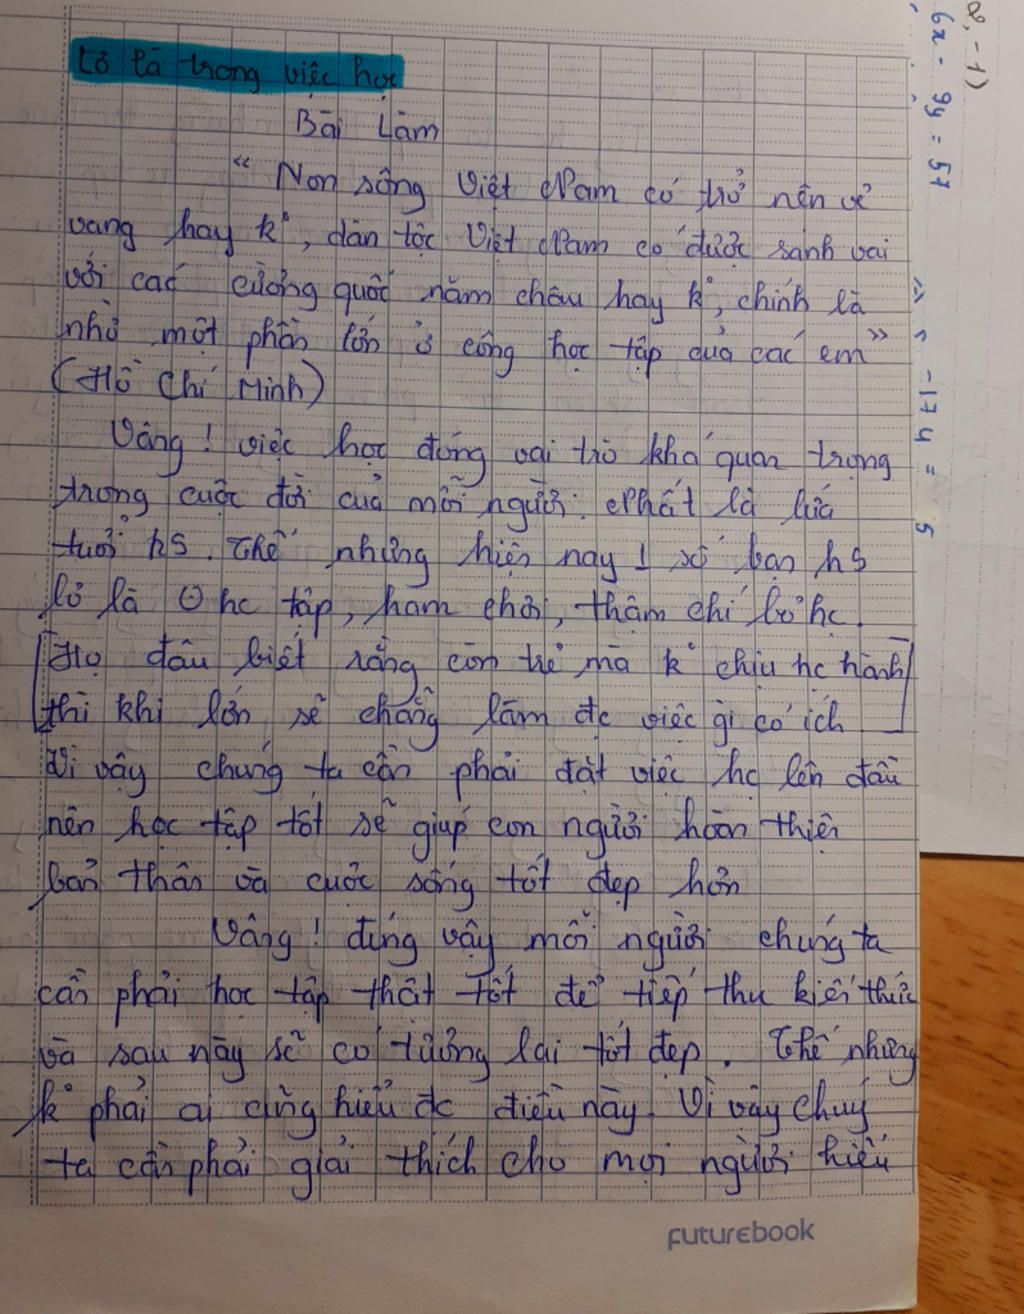 Lơ là trong việc học
Bài Làm
“ Non sông Việt Nam có trở nên vẻ
vang hay k°, dân tộc Việt Nam có được sánh vai
với các cường quốc năm châu hay k°, chính là
nhờ một phần lớn ở công học tập của các em ”
(Hồ Chí Minh)
Vâng ! việc học đóng vai trò khá quan trọng
trong cuộc đời của mỗi người. Nhất là lứa
tuổi hs. Thế nhưng hiện nay 1 số bạn hs
lơ là hc tập, ham chơi, thậm chí bỏ hc.
[Họ đâu biết rằng còn trẻ mà k° chịu hc hành
thì khi lớn sẽ chẳng làm đc việc gì có ích]
Vì vậy chúng ta cần phải đặt việc hc lên đầu
nên học tập tốt sẽ giúp con người hoàn thiện
bản thân và cuộc sống tốt đẹp hơn
Vâng ! đúng vậy mỗi người chúng ta
cần phải học tập thật tốt để tiếp thu kiến thức
và sau này sẽ có tương lai tốt đẹp. Thế nhưng
k° phải ai cũng hiểu đc điều này. Vì vậy chúng
ta cần phải giải thích cho mọi người hiểu
futurebook
8, -1)
6x - 9y = 57
-17y = 5